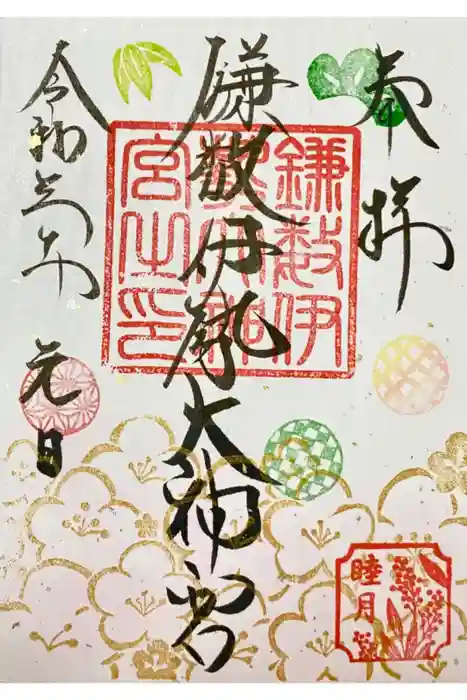 奉拝
鎌数伊勢大神宮
令和年 元日
鎌数伊
勢大神
宮之印
睦月